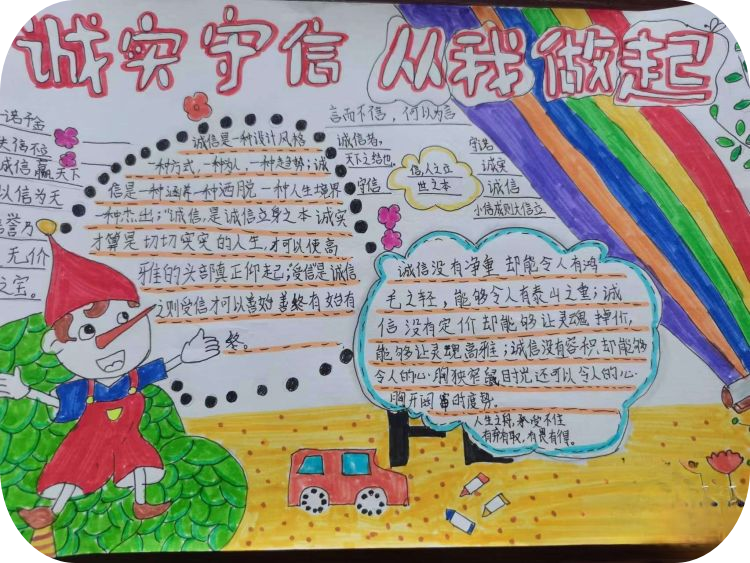 诚实守信 从我做起
一诺千金
失信不
诚信赢天下
以信为天
誉乃
无价
之宝。
诚信是一种设计风格
一种方式,一种为人,一种趋势;诚
信是一种涵养一种洒脱,一种人生境界
一种杰出;"诚信,是诚信立身之本诚实
才算是切切实实的人生,才可以使高
雅的头部真正仰起;受信是诚信
之则受信才可以善始善终有始有
终。
言而不信,何以为信
诚信者,
天下之结也。
守信
信,人之立
世之本
守诺
诚实
诚信
小信成则大信立
诚信没有净重却能令人有鸿
毛之轻,能够令人有泰山之重;诚
信没有定价却能够让灵魂掉价,
能够让灵魂高雅;诚信没有容积,却能够
令人的心胸狭窄鼠目 还可以令人的心
胸开阔
人生之舟,承受不住
有弃有取,有畏有得。